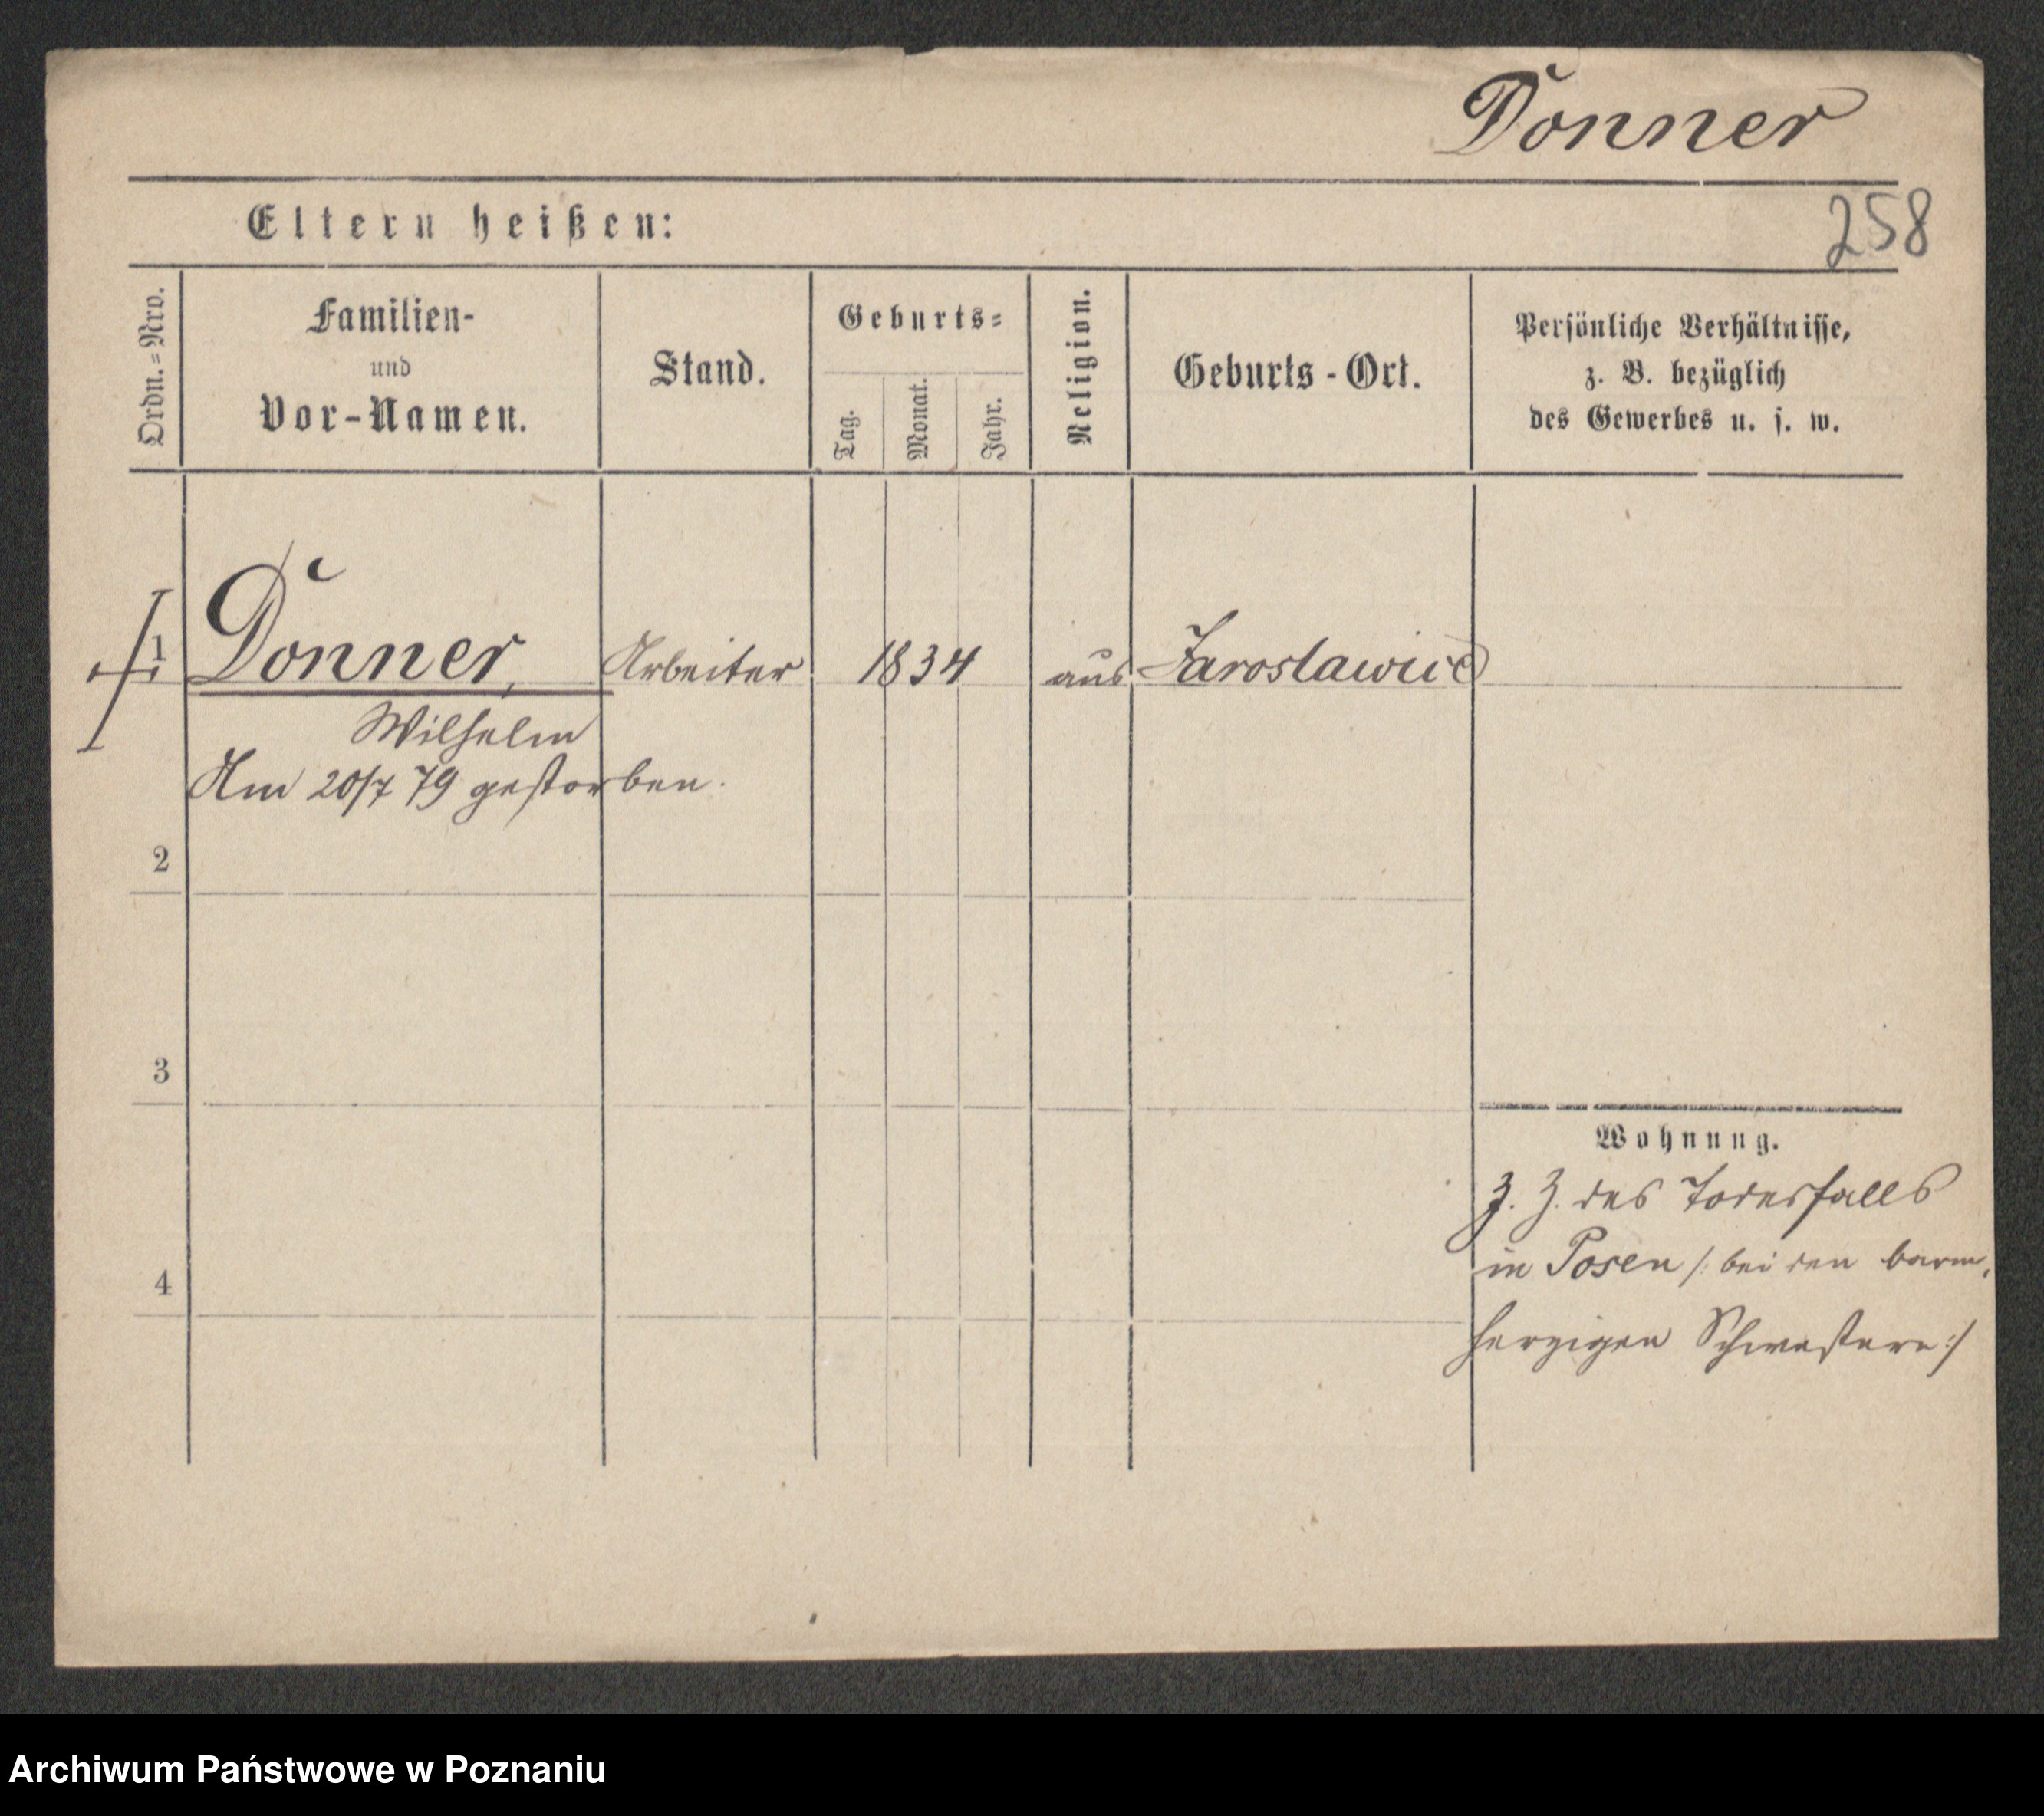 Donner
258
Eltern heißen:
Ordn.=Nro.
Familien-
und
Vor-Namen.
Stand.
Geburts=
Tag.
Monat.
Jahr.
Religion.
Geburts-Ort.
Persönliche Verhältnisse,
z. B. bezüglich
des Gewerbes u. s. w.
1 Donner, Arbeiter 1834 aus Jaroslawice
Wilhelm
Am 20/7 79 gestorben.
2
3
Wohnung.
z. Z. des Todesfalls
4
in Posen /: bei den barm-
herzigen Schwestern :/
Archiwum Państwowe w Poznaniu